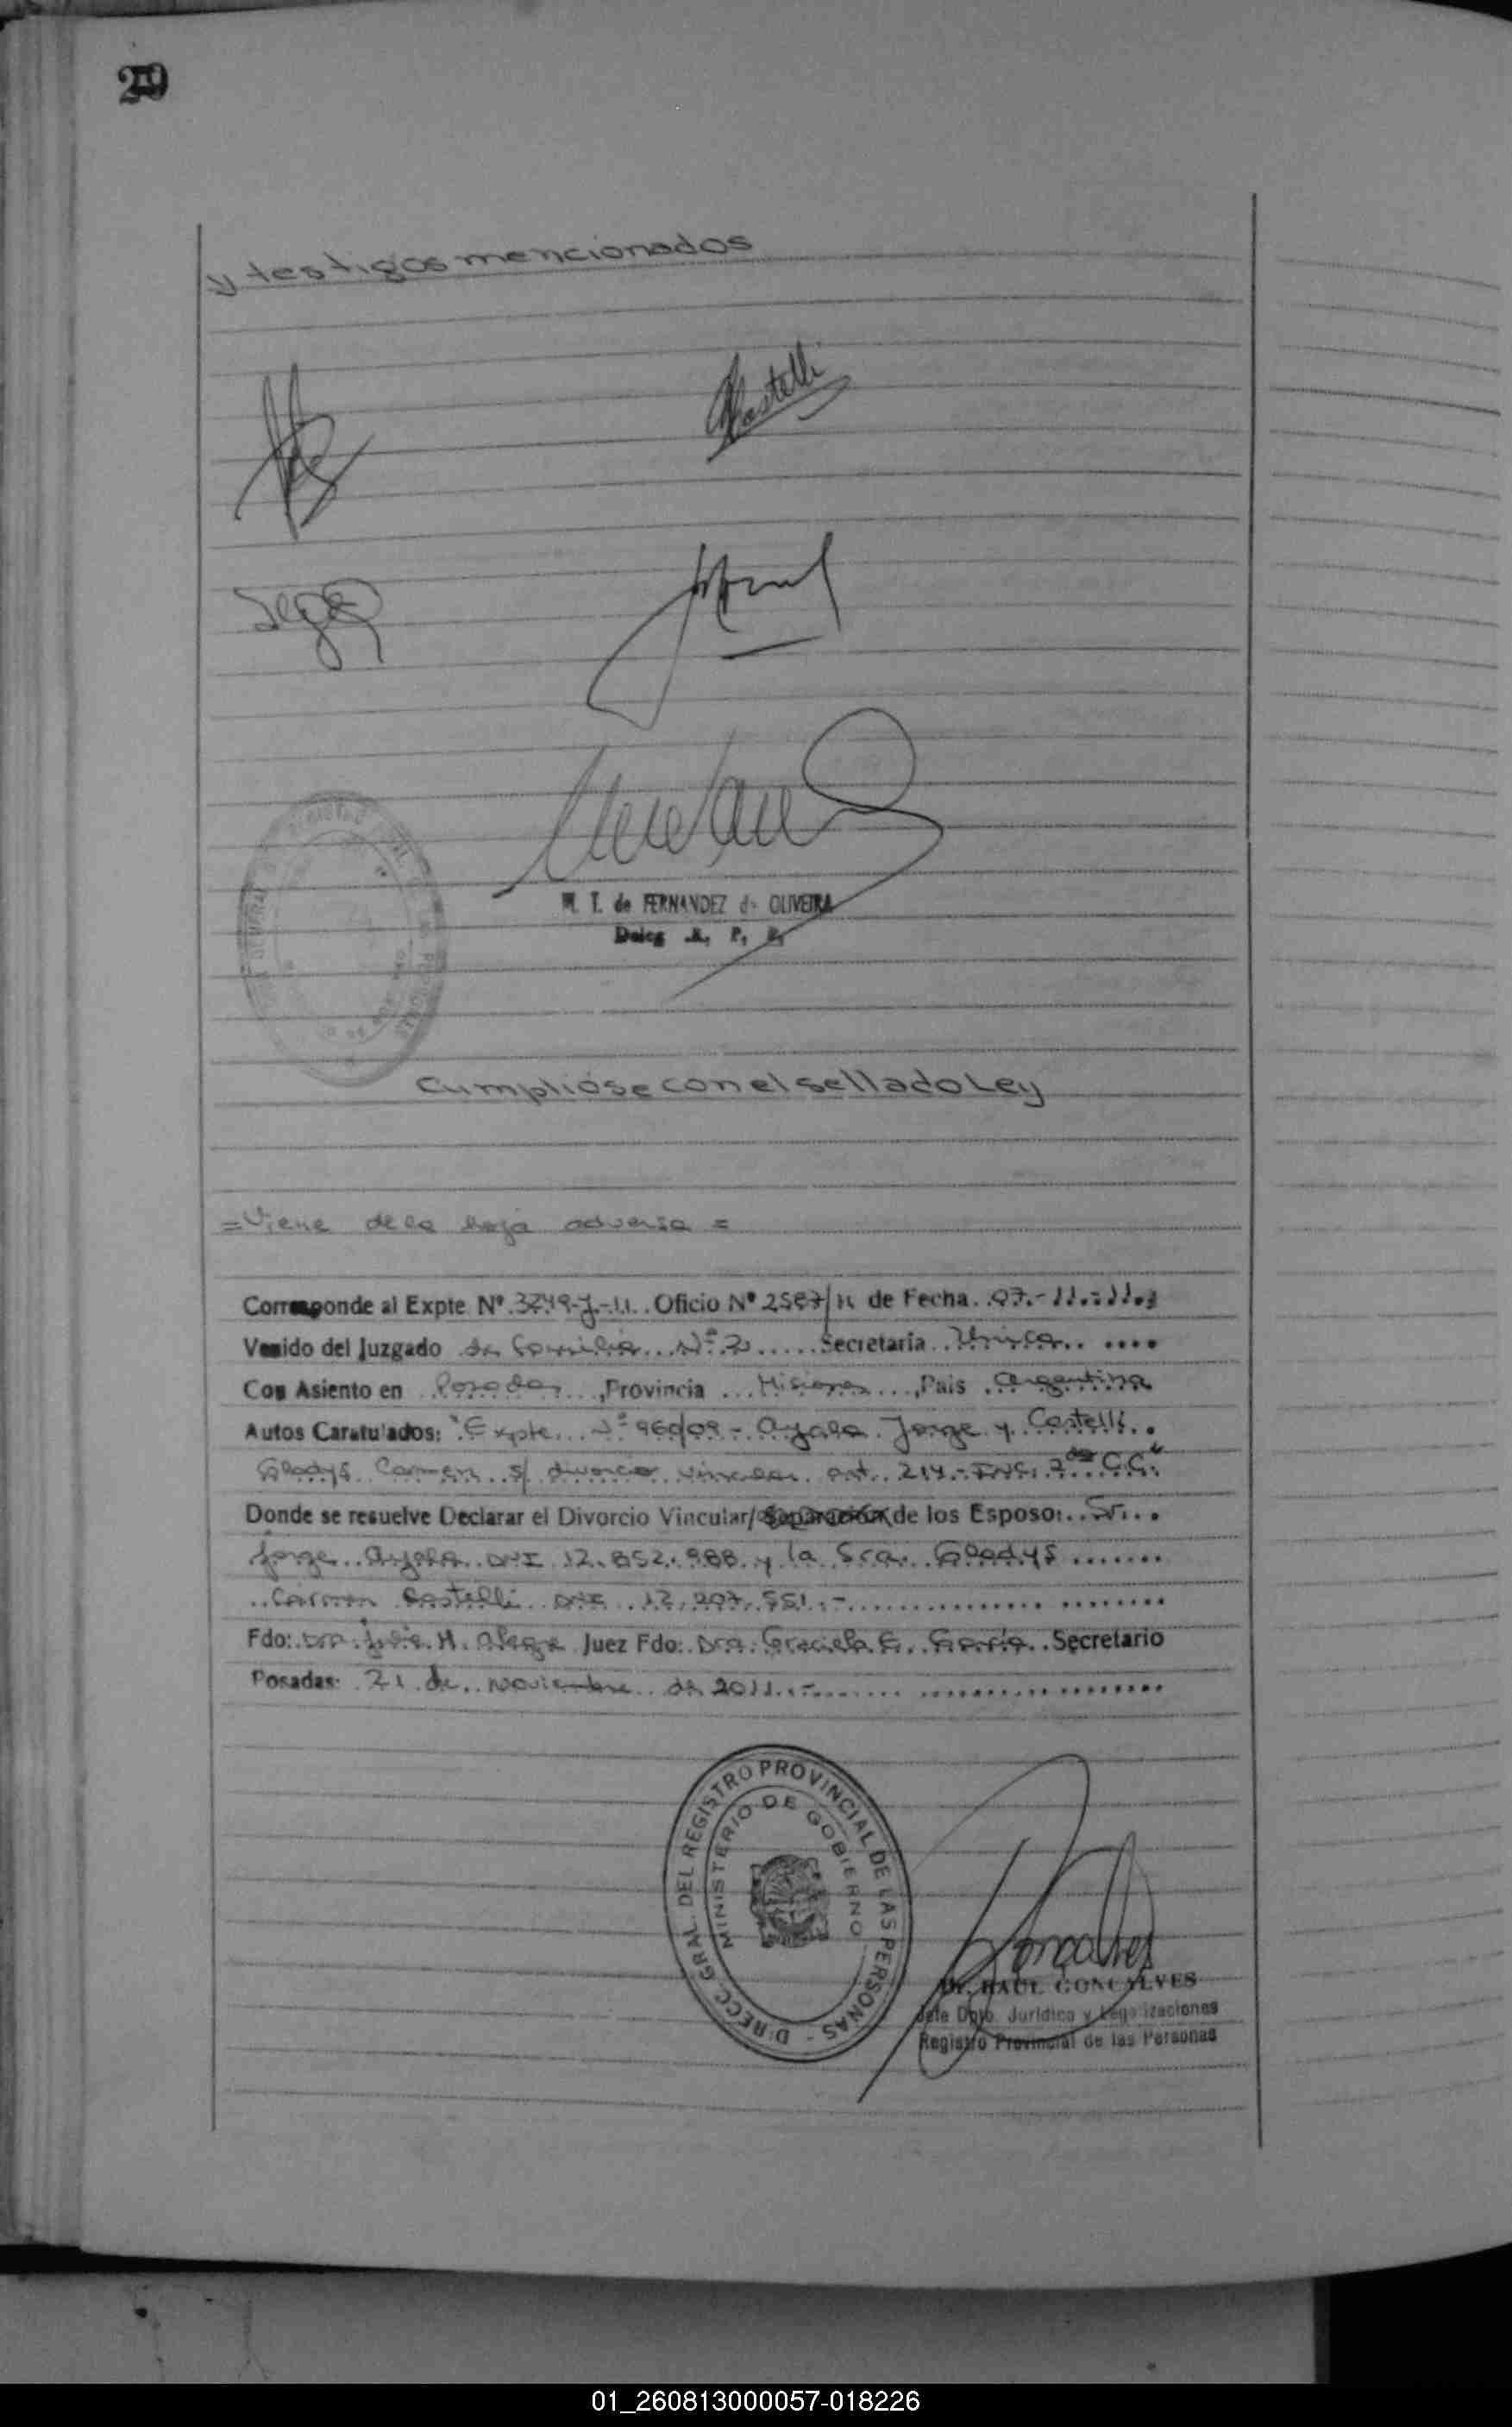 29
y testigos mencionados
Castelli
M. T. de FERNANDEZ de OLIVEIRA
Deleg. R. P. P.
Cumplióse con el sellado Ley
= Viene de la hoja adversa =
Corresponde al Expte Nº 3249-J-11.. Oficio Nº 2587/11 de Fecha. 07.-11.-11.-
Venido del Juzgado de Familia Nº 2 Secretaría Única
Con Asiento en Posadas, Provincia Misiones, País Argentina
Autos Caratulados: "Expte. Nº 960/09 - Ayala Jorge y Castelli
Gladys Carmen s/ divorcio vincular art. 214.- INC. 2do C.C."
Donde se resuelve Declarar el Divorcio Vincular/Separación de los Esposos: Sr.
Jorge Ayala DNI 12.852.988 y la Sra. Gladys
Carmen Castelli DNI 12.207.551.-
Fdo: Dra. Julia H. Alegre Juez Fdo: Dra. Graciela E. García Secretario
Posadas: 21 de Noviembre de 2011.-
DIRECC. GRAL. DEL REGISTRO PROVINCIAL DE LAS PERSONAS -
MINISTERIO DE GOBIERNO
Goncalves
Dr. RAUL GONCALVES
Jefe Dpto. Jurídico y Legalizaciones
Registro Provincial de las Personas
01_260813000057-018226